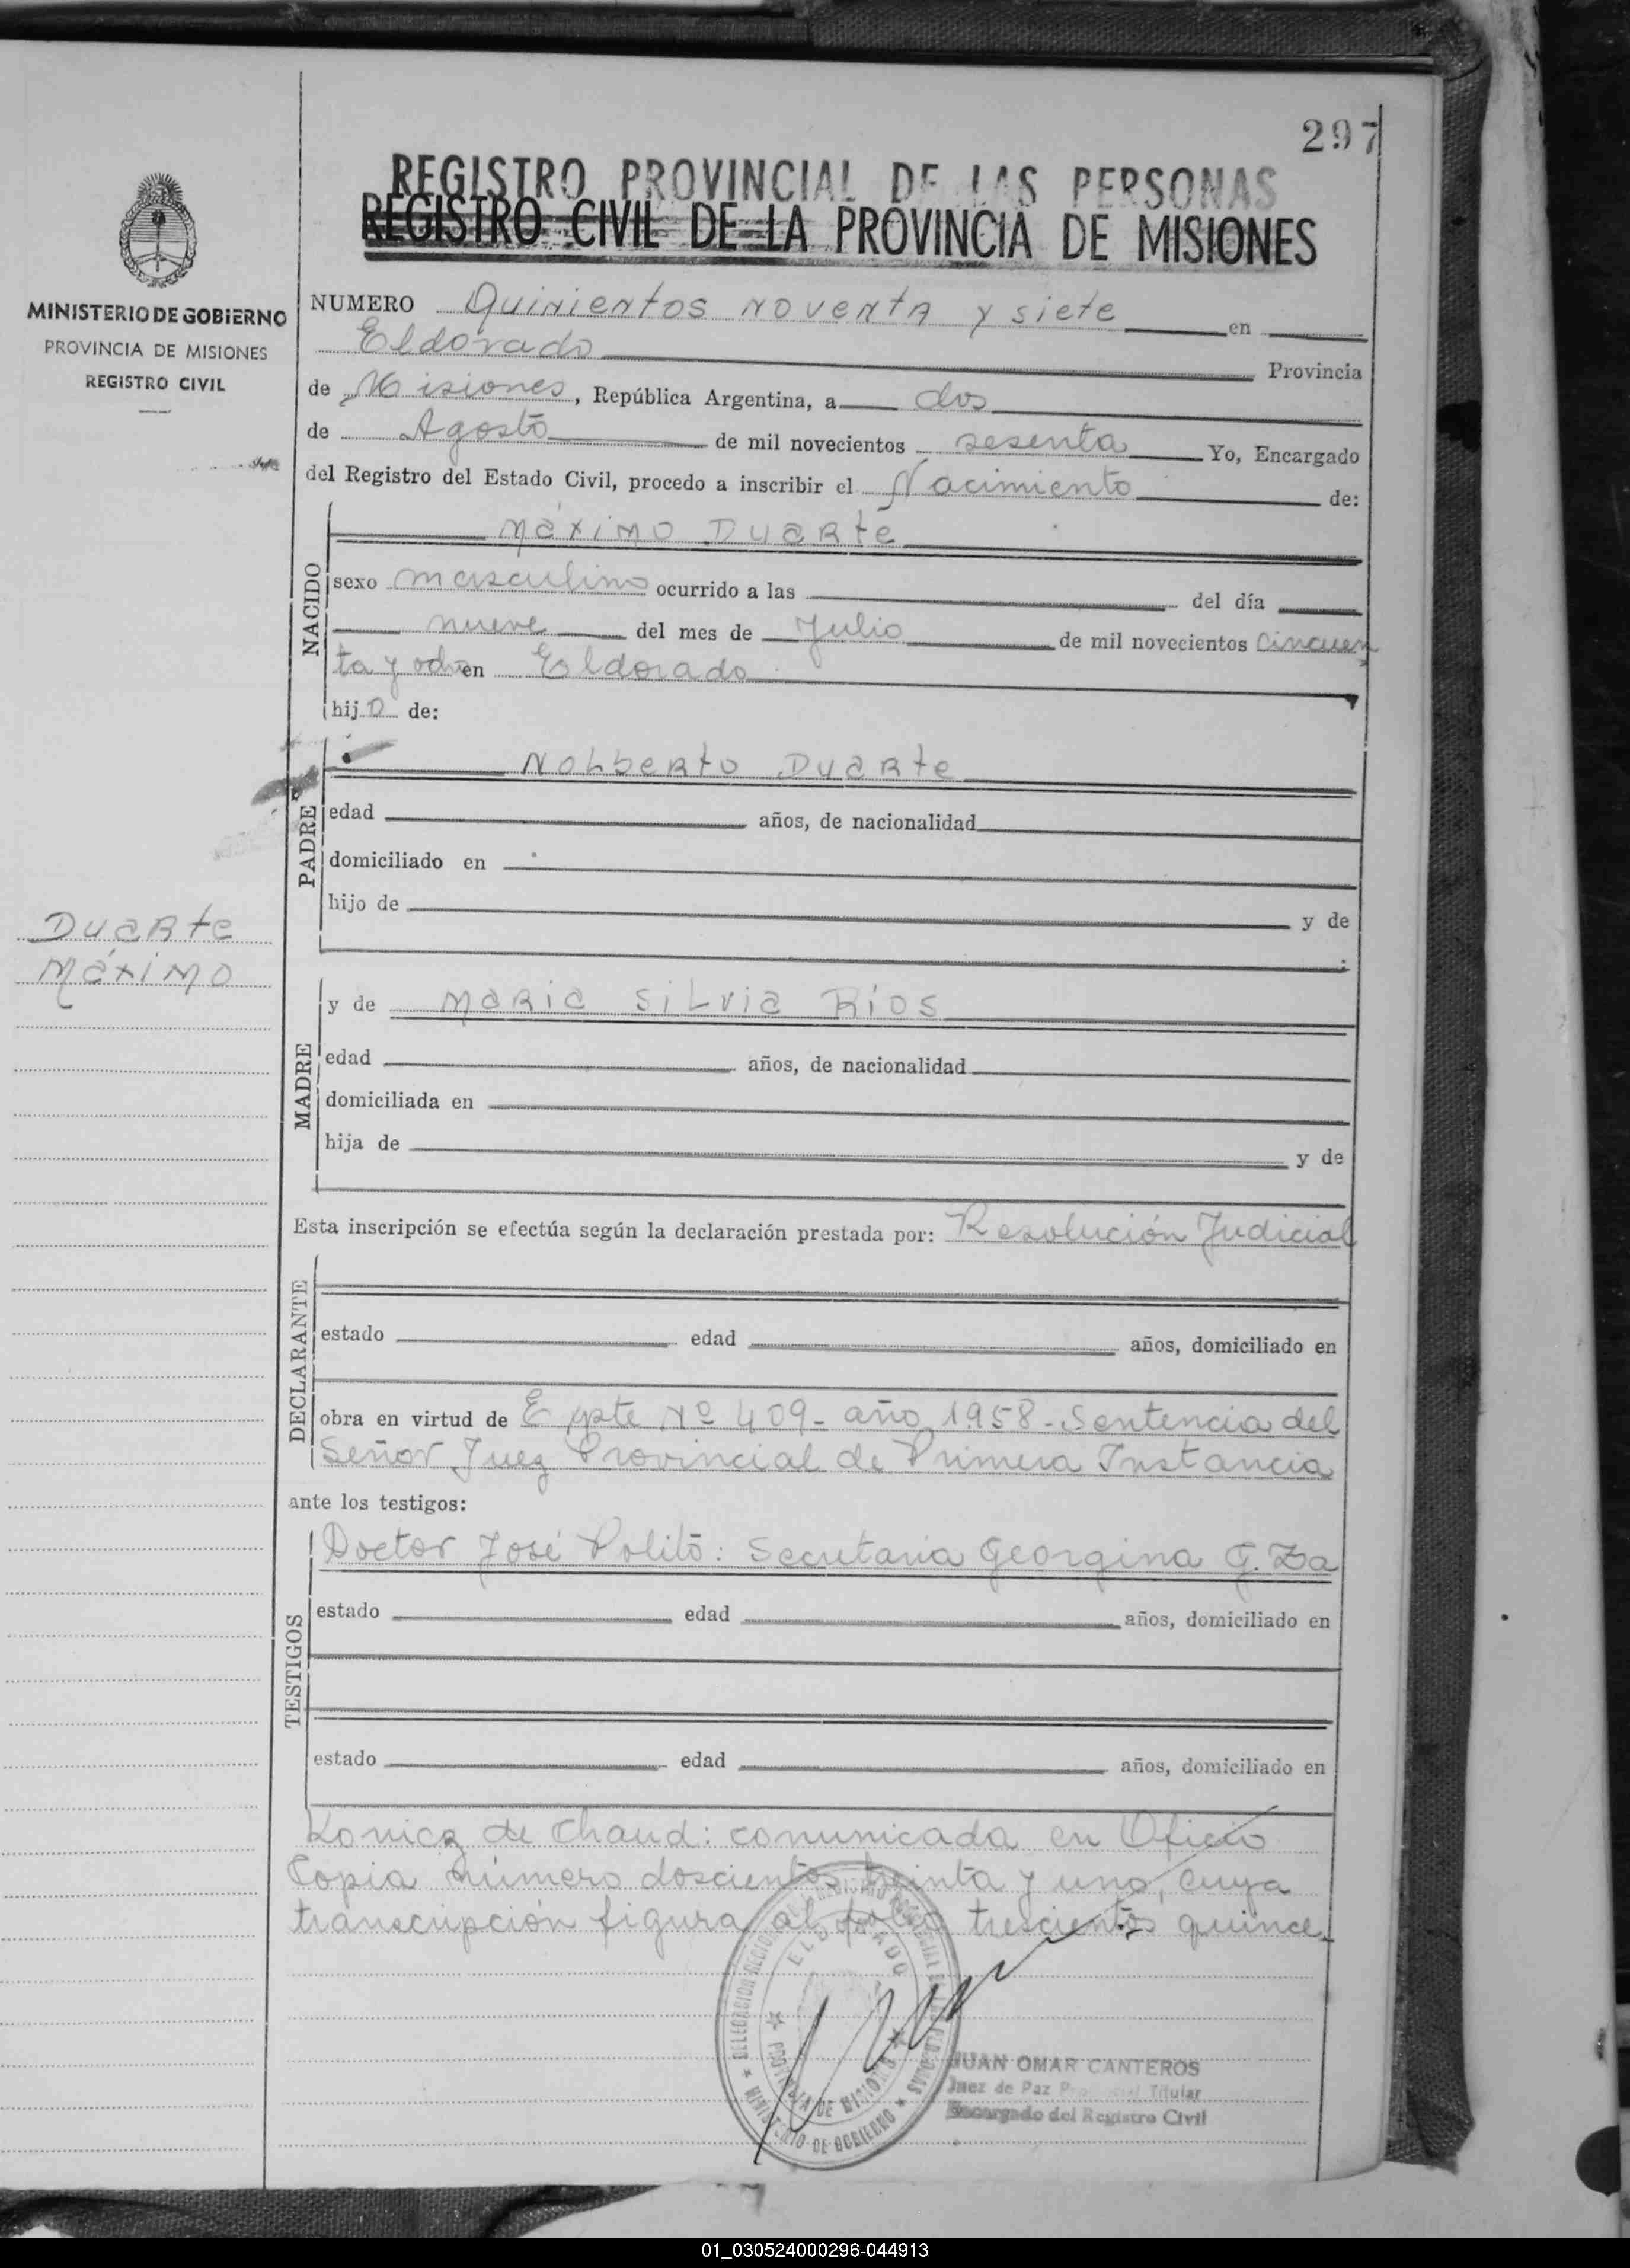 297
REGISTRO PROVINCIAL DE LAS PERSONAS
REGISTRO CIVIL DE LA PROVINCIA DE MISIONES
MINISTERIO DE GOBIERNO
PROVINCIA DE MISIONES
REGISTRO CIVIL
NUMERO Quinientos noventa y siete en
Eldorado Provincia
de Misiones, República Argentina, a dos
de Agosto de mil novecientos sesenta Yo, Encargado
del Registro del Estado Civil, procedo a inscribir el Nacimiento de:
NACIDO
Máximo Duarte
sexo masculino ocurrido a las del día
nueve del mes de Julio de mil novecientos cincuen
ta y ocho en Eldorado
hijo de:
PADRE
Norberto Duarte
edad años, de nacionalidad
domiciliado en
hijo de y de
Duarte
Máximo
MADRE
y de Maria Silvia Ríos
edad años, de nacionalidad
domiciliada en
hija de y de
Esta inscripción se efectúa según la declaración prestada por: Resolución Judicial
DECLARANTE
estado edad años, domiciliado en
obra en virtud de Expte Nº 409- año 1958- Sentencia del
Señor Juez Provincial de Primera Instancia
ante los testigos:
TESTIGOS
Doctor José Politó: Secretaria Georgina G. Za
estado edad años, domiciliado en
estado edad años, domiciliado en
Konicz de Chaud: comunicada en Oficio
Copia número doscientos treinta y uno, cuya
transcripción figura al folio trescientos quince.
ELDORADO
PROVINCIA DE MISIONES
MINISTERIO DE GOBIERNO
JUAN OMAR CANTEROS
Juez de Paz Titular
Encargado del Registro Civil
01_030524000296-044913